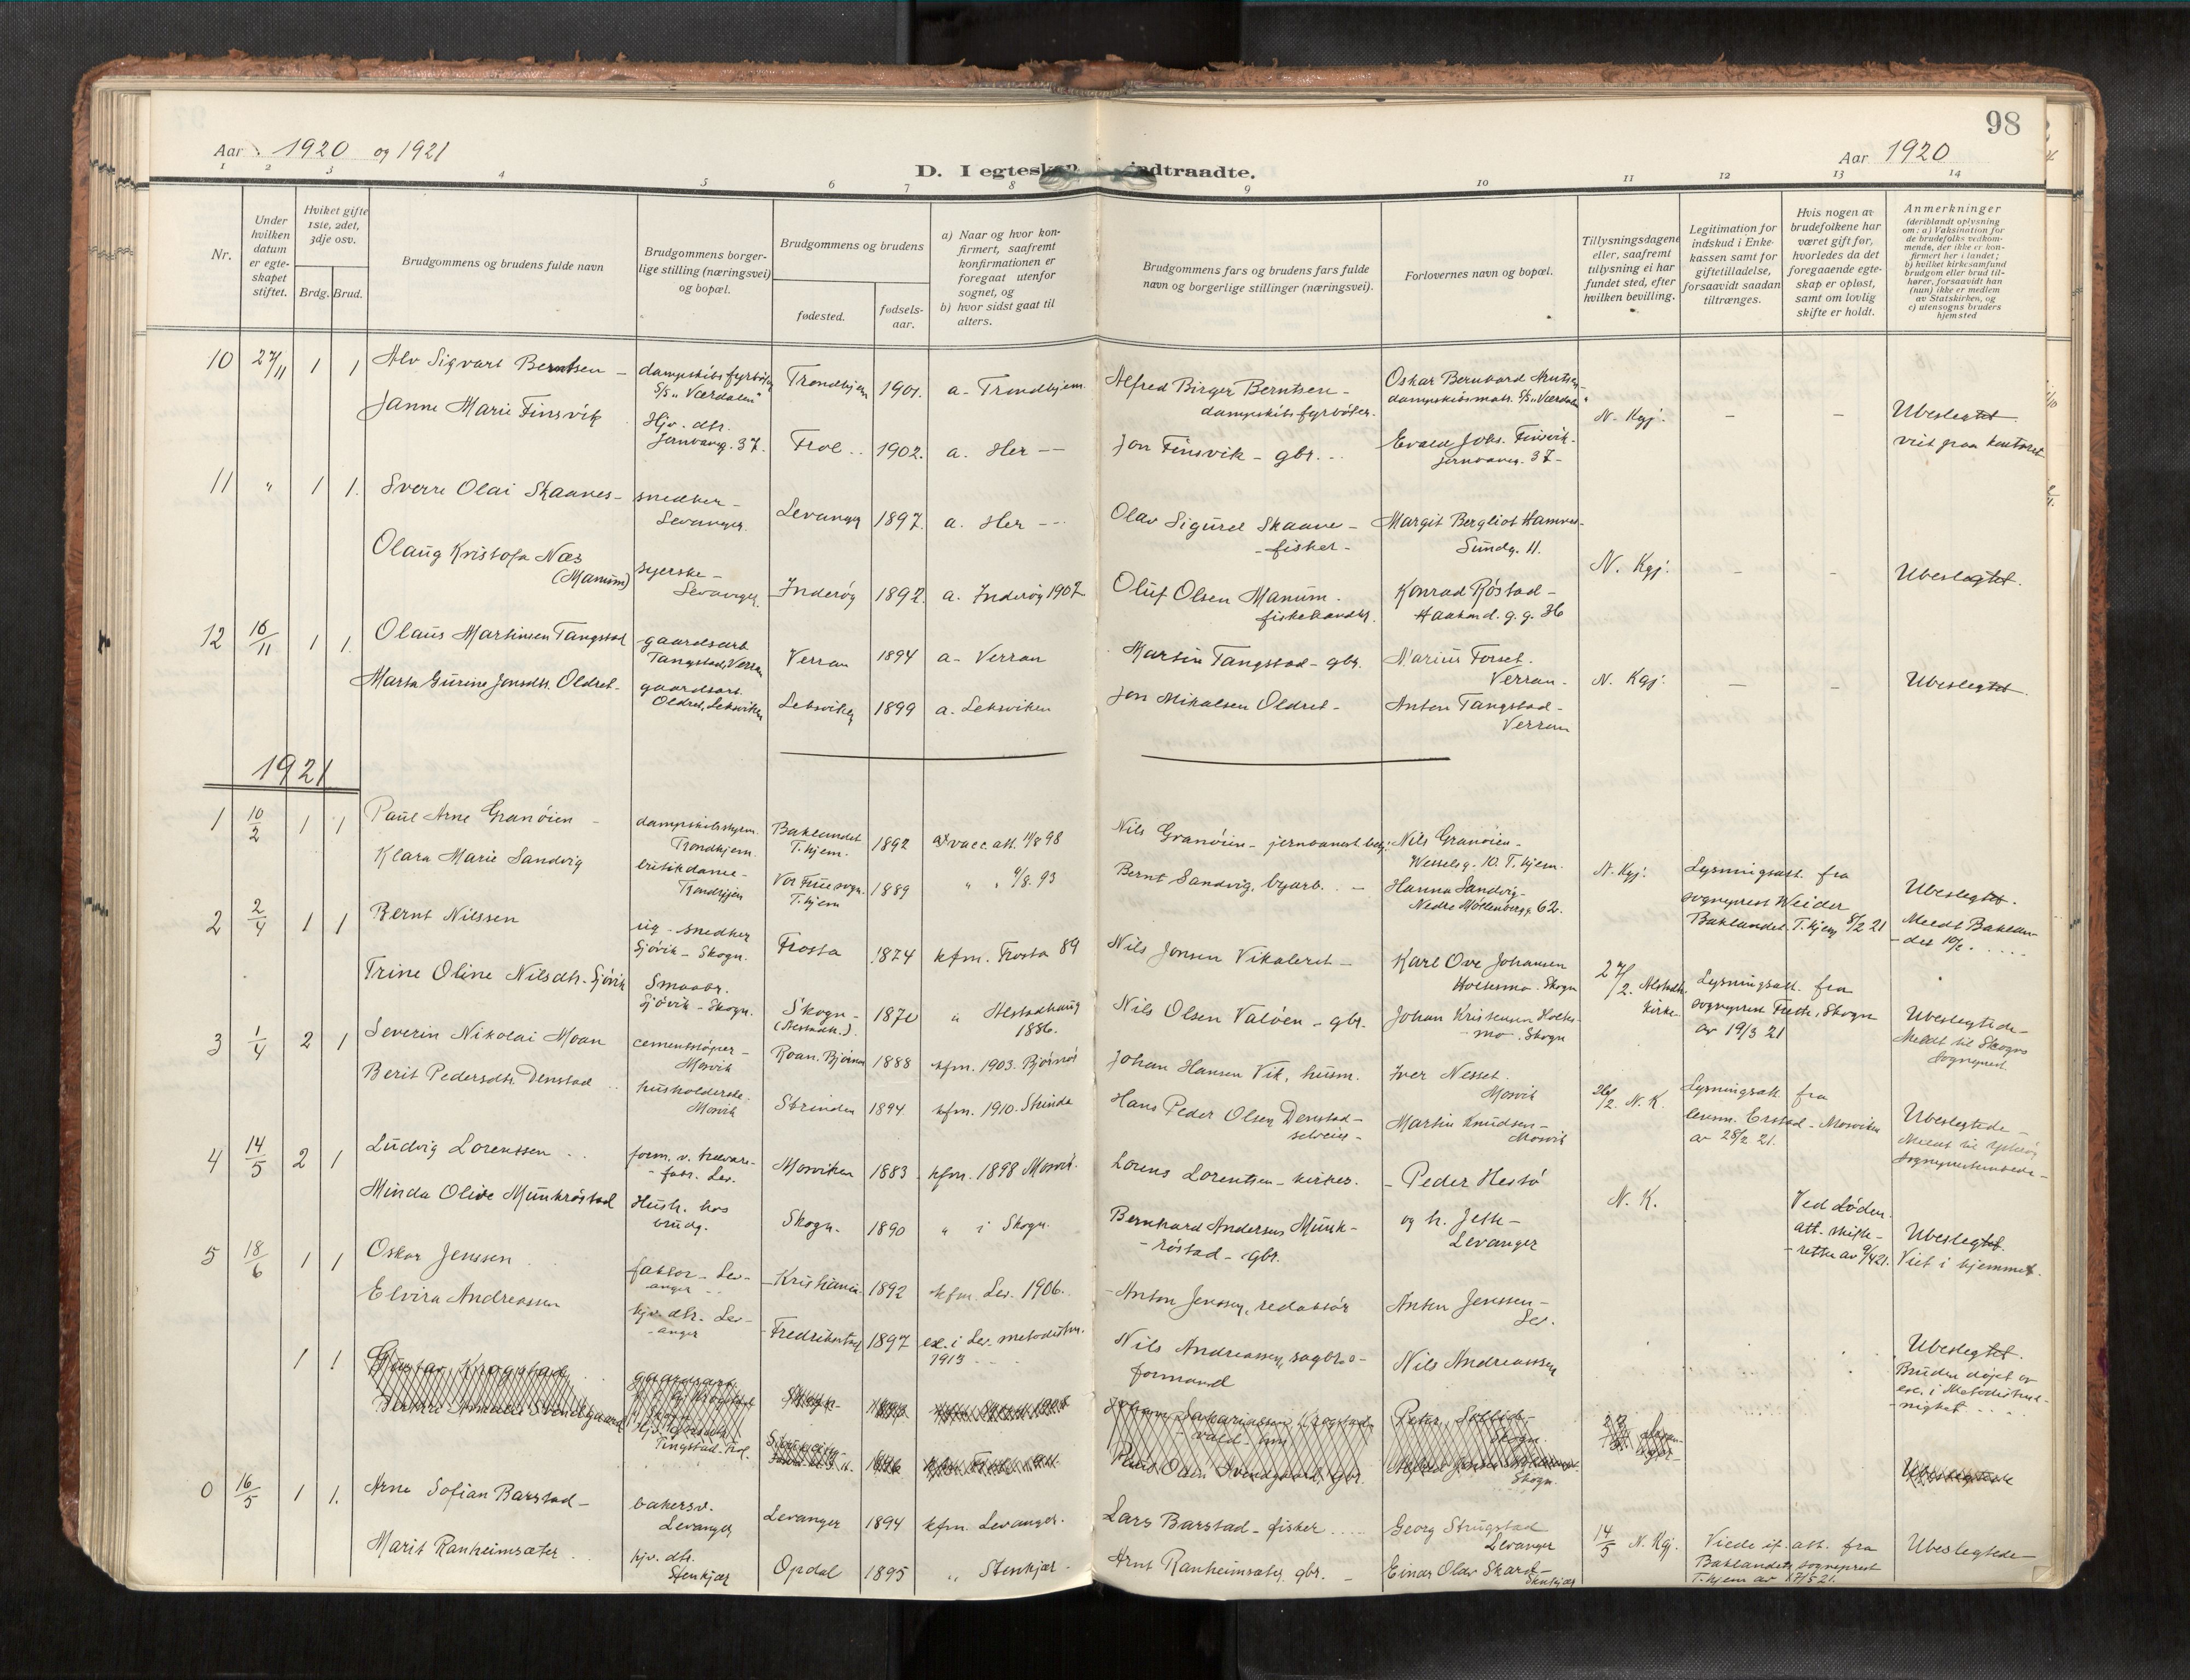 98
Aar 1920 og 1921
Aar 1920
D. I egteskap indtraadte.
1 2 3 4 5 6 7 8 9 10 11 12 13 14
Nr.
Under hvilken datum er egteskapet stiftet.
Hviket gifte 1ste, 2det, 3dje osv.
Brdg. Brud.
Brudgommens og brudens fulde navn
Brudgommens borgerlige stilling (næringsvei) og bopæl.
Brudgommens og brudens
fødested.
fødsels-aar.
a) Naar og hvor konfirmert, saafremt konfirmationen er foregaat utenfor sognet, og
b) hvor sidst gaat til alters.
Brudgommens fars og brudens fars fulde navn og borgerlige stillinger (næringsvei).
Forlovernes navn og bopæl.
Tillysningsdagene eller, saafremt tillysning ei har fundet sted, efter hvilken bevilling.
Legitimation for indskud i Enkekassen samt for giftetilladelse, forsaavidt saadan tiltrænges.
Hvis nogen av brudefolkene har været gift før, hvorledes da det foregaaende egteskap er opløst, samt om lovlig skifte er holdt.
Anmerkninger
(deriblandt oplysning om: a) Vaksination for de brudefolks vedkommende, der ikke er konfirmert her i landet; b) hvilket kirkesamfund brudgom eller brud tilhører, forsaavidt han (hun) ikke er medlem av Statskirken, og c) utensogns bruders hjemsted
10 27/11 1 1 Alv Sigvart Berntsen – dampskibsfyrbøter S/S "Værdalen" Trondhjem 1901. a. Trondhjem Alfred Birger Berntsen – dampskibsfyrbøter. Oskar Bernhard Knutsen dampskibsmatr. S/S "Værdalen"
Janne Marie Finsvik Hjv. dtr. Jernbaneg. 37. Frol .. 1902. a. Her –– Jon Finsvik – gbr. .. Evald Johs. Finsvik. Jernbaneg. 37 – N. Kgj. – – Ubeslegtet. viet paa kontoret
11 " 1 1. Sverre Olai Skaanes – snedker – Levanger. Levanger 1897. a. Her –– Olav Sigurd Skaane – – fisker – Margit Bergliot Hamnes – Sundg. 11.
Olaug Kristofa Næs (Manum) syerske – Levanger. Inderøy 1892. a. Inderøy 1907 Oluf Olsen Manum. fiskehandler. Konrad Røstad – Haakon d. g. g. 36 N. Kgj. – – Ubeslegtet.
12 16/11 1 1. Olaus Martinsen Tangstad gaardsarb. Tangstad, Verran Verran 1894 a. Verran Martin Tangstad – gbr. Marius Forset. Verran.
Marta Gurine Jonsdtr. Oldret – gaardsarb. Oldret, Leksviken Leksviken 1899 a. Leksviken Jon Mikalsen Oldret – Anton Tangstad – Verran N. Kgj. – – Ubeslegtet.
1921
1 10/2 1 1 Paul Arne Granøien – dampskibsstyrm. Trondhjem. Baklandet T.hjem. 1892 a) vacc. att. 11/8 98 Nils Granøien – jernbanearb. Nils Granøien – Wesselsg. 10. T.hjem.
Klara Marie Sandvig butikdame – Trondhjem Vor Frue sogn. T.hjem 1889 " " 4/8. 93 Bernt Sandvig, byarb. – Hanna Sandvig – Nedre Møllenbergg. 62. N. Kgj. Lysningsatt. fra sogneprest Weider Baklandet T.hjem 8/2 21 Ubeslegtet. Meldt Baklandet 10/2. ...
2 2/4 1 1 Bernt Nilssen snedker Sjøvik – Skogn. Frosta 1874 kfm. Frosta 89 Nils Jonsen Vikaleret – Karl Ove Johansen Holtesmo. Skogn
Trine Oline Nilsdtr. Sjøvik Smaabr. Sjøvik – Skogn. Skogn – (Alstadh.). 1870 " Alstadhaug 1886. Nils Olsen Valøen – gbr. Johan Kristensen Holtesmo. Skogn 27/2. Alstadh. kirke Lysningsatt. fra sogneprest Skogn av 19/3 21 Ubeslegtede – Meldt til Skogns sogneprest
3 1/4 2 1 Severin Nikolai Moan cementstøper – Mosvik Roan. Bjørnør 1888 kfm. 1903. Bjørnør Johan Hansen Vik, husm. Iver Nesset. Mosvik
Berit Pedersdtr. Denstad .. husholderske. Mosvik Strinden 1894. kfm. 1910. Strinda Hans Peder Olsen Denstad – selveier – Martin Knudsen – Mosvik 26/2. N. K. Lysningsatt. fra lensm. Erstad – Mosviken av 28/2 21. Ubeslegtede – Meldt til Ytterøy sogneprestembede –
4 14/5 2 1 Ludvig Lorentsen .. form. v. trevare-fabr. Lev. Mosviken 1883 kfm. 1898 Mosvik. Lorens Lorentsen – kirkes. – Peder Hestø
Minda Olive Munkrøstad Hush. hos brudg. Skogn. 1890 " i Skogn. Bernhard Andersen Munkrøstad – gbr. og h. Jette – Levanger N. K. Ved døden. att. skifteretten av 9/4 21. Ubeslegtet. Viet i hjemmet.
5 18/6 1 1 Oskar Jenssen faktor – Levanger Kristiania 1892 kfm. Lev. 1906. – Anton Jenssen, redaktør Anton Jenssen – Lev.
Elvira Andreassen hjv. dtr. Levanger Fredrikstad 1897 ex. i Lev. metodistm. 1913 .. Nils Andreassen, sagbr. formand Nils Andreassen Ubeslegtet. Bruden døpt og ex. i Metodistmenighet
1 1 Gustav Krogstad gaardsarb. Skogn. kfm. Skogn 1908 Johan Sakariassen Krogstad Peter Sollid – Skogn.
Svendgaard Tingstad. Frol. 1896 Paul Odin Svendgaard, gbr. Skogn. Levanger Ubeslegtede
0 16/5 1 1. Arne Sofian Barstad – bakersv. Levanger Levanger 1894 kfm. Levanger. Lars Barstad – fisker .... Georg Strugstad Levanger
Marit Ranheimsæter . hjv. dtr. Stenkjær Opdal 1895 " Stenkjær – Arnt Ranheimsæter, gbr. – Einar Olav Skard – Stenkjær 14/5 N. Kgj. Viede if. att. fra Baklandets sogneprest T.hjem av 17/5 21. Ubeslegtede –